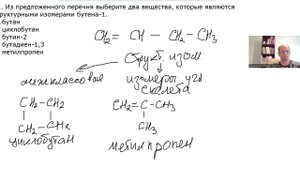 . Из предложенного перечня выберите два вещества, которые являются
руктурными изомерами бутена-1.
бутан
циклобутан
бутин-2
бутадиен-1,3
метилпропен
CH₂ = CH – CH₂ – CH₃
структ. изом.
межклассовые
изомеры угл.
скелета
CH₂ – CH₂
CH₂ – CH₂
циклобутан
CH₂ = C – CH₃
CH₃
метилпропен